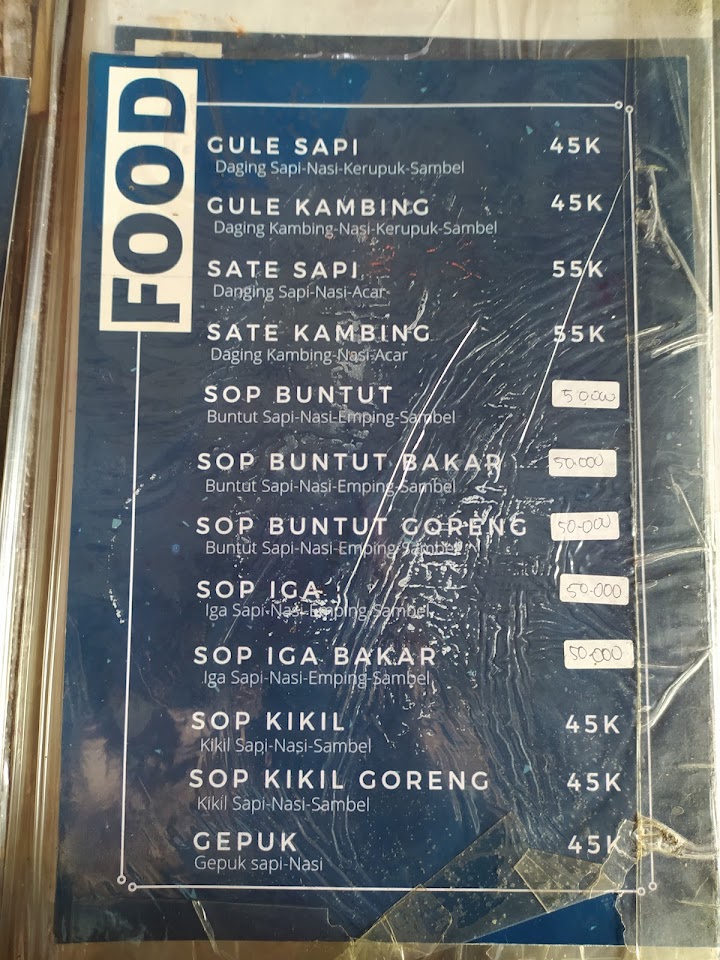 FOOD
GULE SAPI 45K
Daging Sapi-Nasi-Kerupuk-Sambel
GULE KAMBING 45K
Daging Kambing-Nasi-Kerupuk-Sambel
SATE SAPI 55K
Danging Sapi-Nasi-Acar
SATE KAMBING 55K
Daging Kambing-Nasi-Acar
SOP BUNTUT 50.000
Buntut Sapi-Nasi-Emping-Sambel
SOP BUNTUT BAKAR 50.000
Buntut Sapi-Nasi-Emping-Sambel
SOP BUNTUT GORENG 50.000
Buntut Sapi-Nasi-Emping-Sambel
SOP IGA 50.000
Iga Sapi-Nasi-Emping-Sambel
SOP IGA BAKAR 50.000
Iga Sapi-Nasi-Emping-Sambel
SOP KIKIL 45K
Kikil Sapi-Nasi-Sambel
SOP KIKIL GORENG 45K
Kikil Sapi-Nasi-Sambel
GEPUK 45K
Gepuk sapi-Nasi